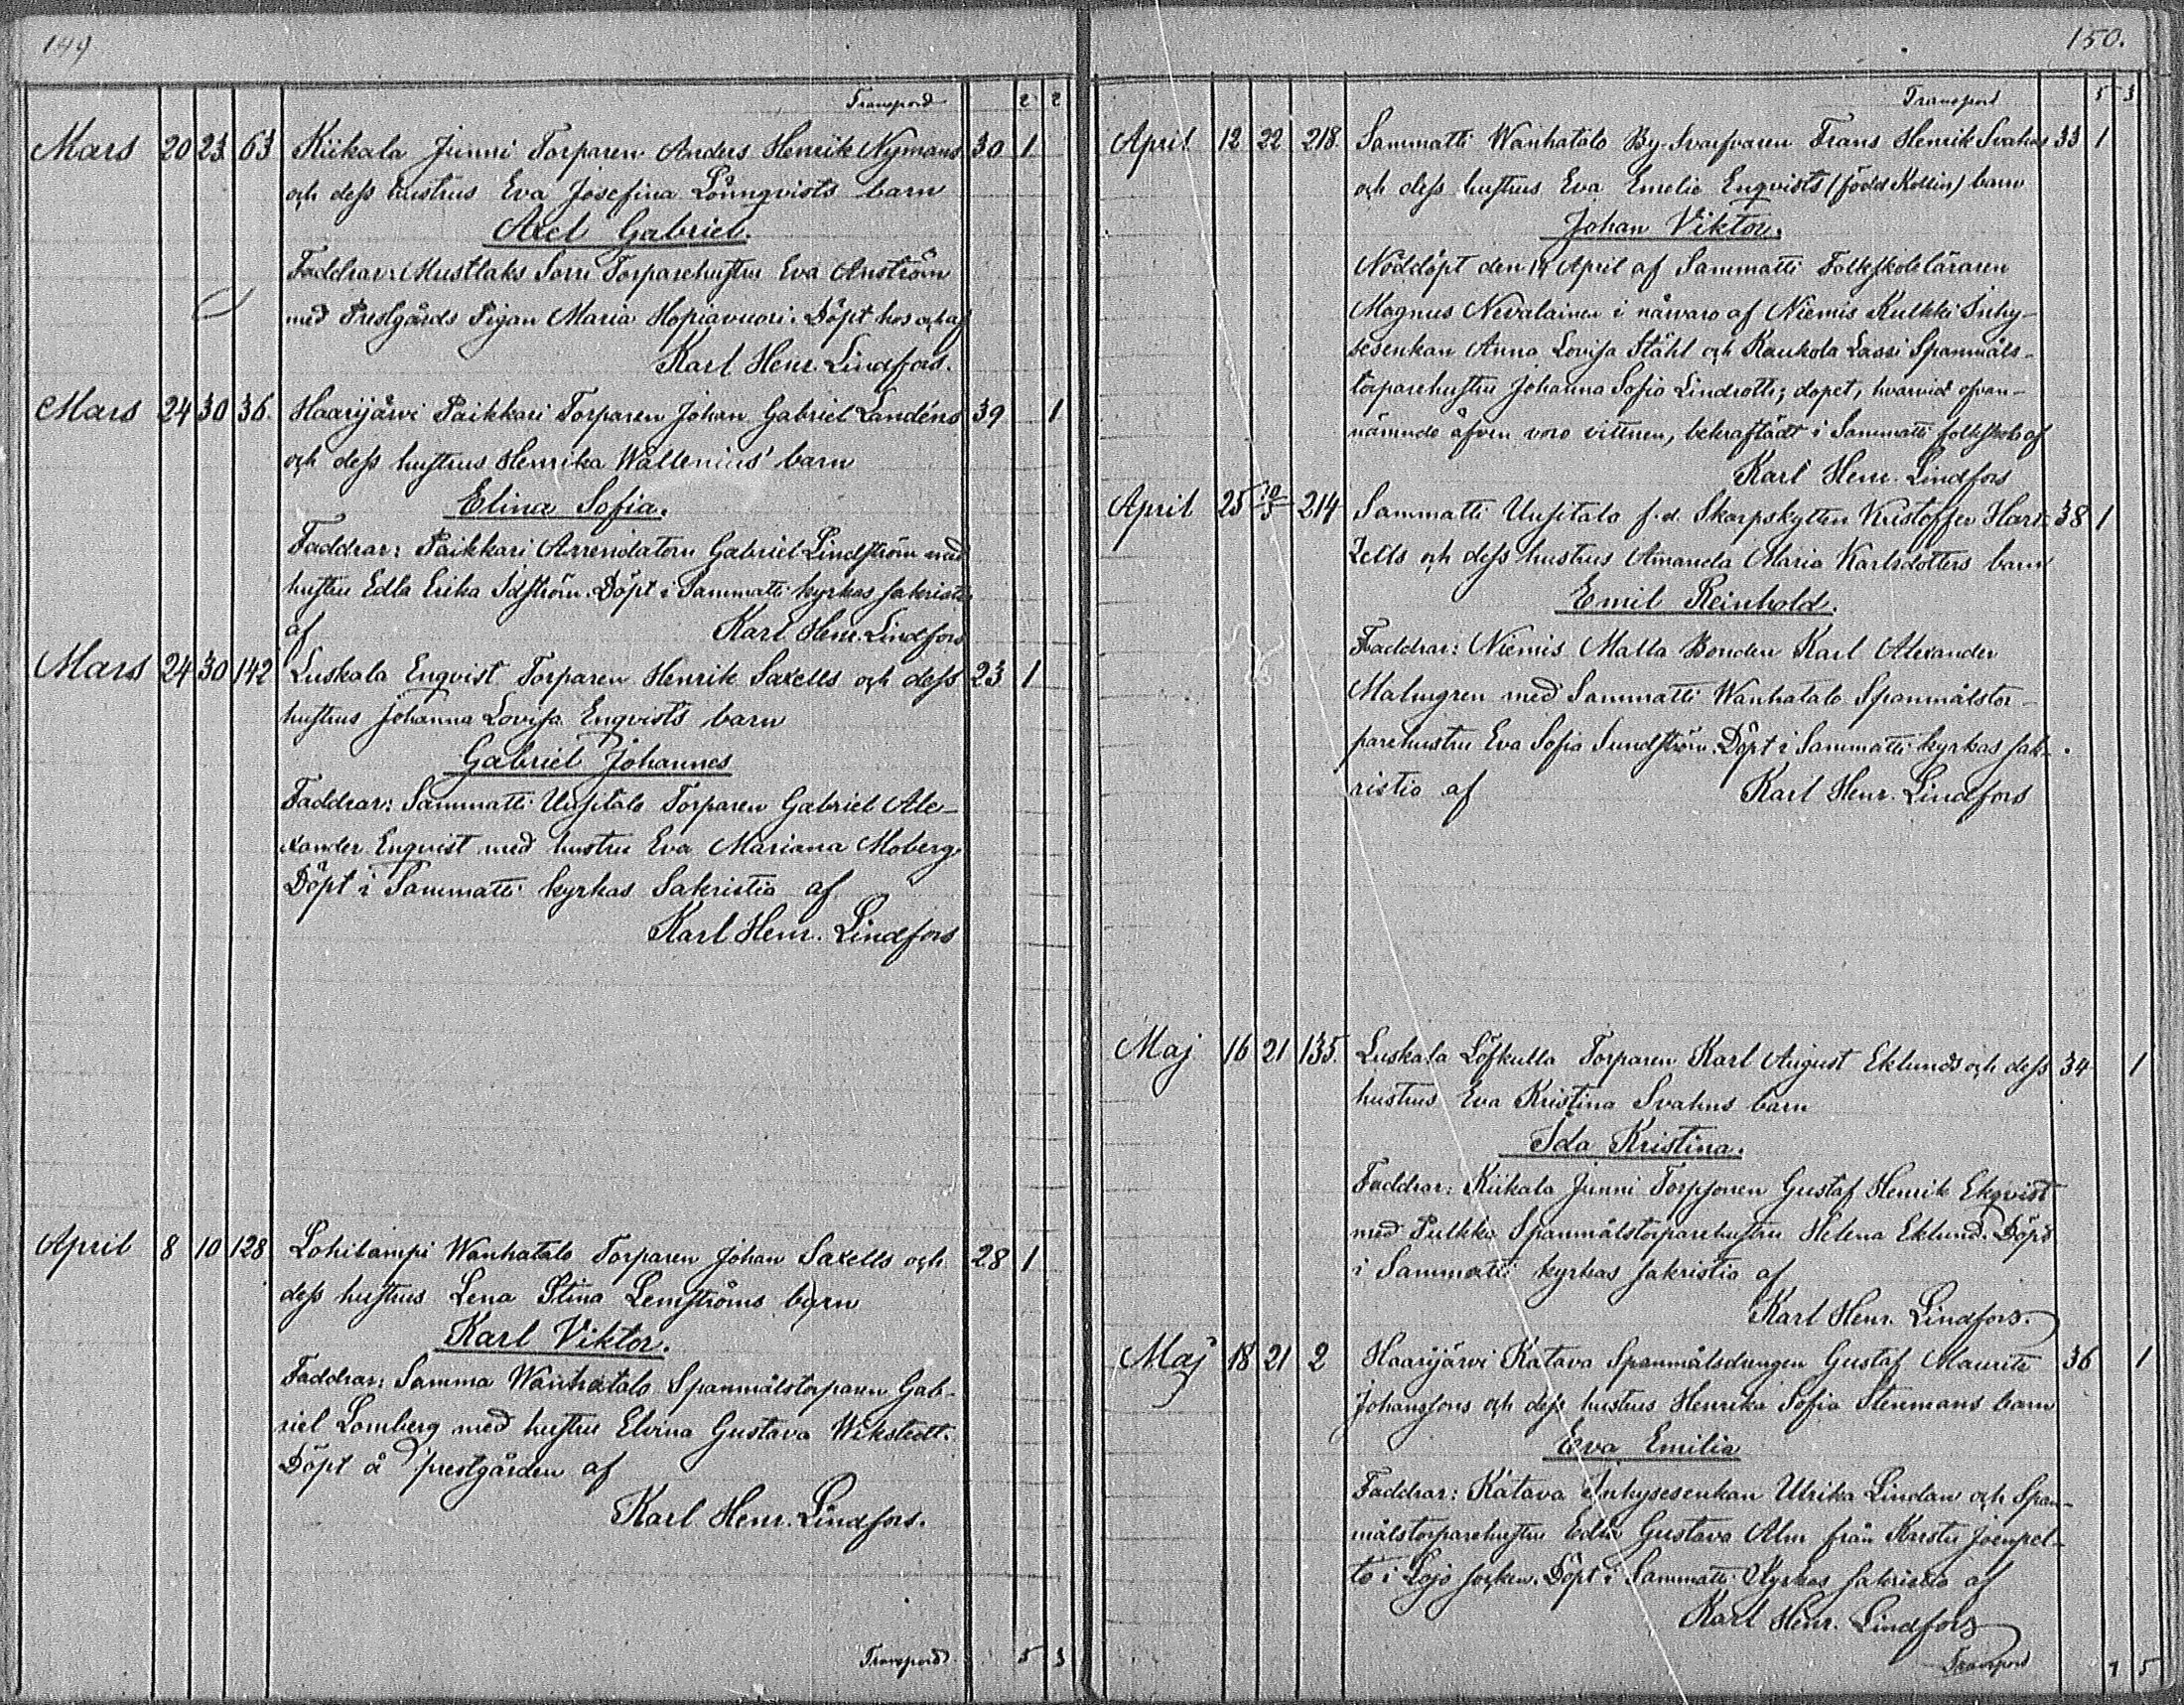 149
Transpord 2 2
Mars 20 23 63 Kiikala Junni Torparen Anders Henrik Nymans 30 1
och dess hustrus Eva Josefina Lönnqvists barn
Axel Gabriel.
Faddrar: Mustlaks Torparehustru Eva
med Prestgårds Pigan Maria Hopiavuori. Döpt hos och af
Karl Henr. Lindfors.
Mars 24 30 36. Haarijärvi Paikkari Torparen Johan Gabriel Landéns 39 1
och dess hustrus Henrika Wallenius' barn
Elina Sofia.
Faddrar: Paikkari Arrendatorn Gabriel Lindström med
hustru Edla Erika Idström. Döpt i Sammatti kyrkas sakristia
af Karl Henr. Lindfors
Mars 24 30 142 Luskala Enqvist Torparen Henrik Saxells och dess 23 1
hustrus Johanna Lovisa Enqvists barn
Gabriel Johannes
Faddrar: Sammatti Uusitalo Torparen Gabriel Ale-
xander Enqvist med hustru Eva Mariana Moberg.
Döpt i Sammatti kyrkas Sakristia af
Karl Henr. Lindfors
April 8 10 128 Lohilampi Wanhatalo Torparen Johan Saxells och 28 1
dess hustrus Lena Stina Lemströms barn
Karl Viktor.
Faddrar: Samma Wanhatalo Spanmålstorparen Gab-
riel Lomberg med hustru Elvina Gustava Wikstedt.
Döpt å prestgården af
Karl Henr. Lindfors.
Transpord 5 3
150.
Transpord 5 3
April 12 22 218. Sammatti Wanhatalo By-Svarfvaren Frans Henrik Svahns 33 1
och dess hustrus Eva Emelie Enqvists (född Kollin) barn
Johan Viktor.
Nöddöpt den 14 April af Sammatti Folkskoleläraren
Magnus Nevalainen i närvaro af Niemis Kulkki Inhy-
sesenkan Anna Lovisa Ståhl och Kaukola Lassi Spanmåls-
torparehustru Johanna Sofia Lindrotti; dopet, hvarvid ofvan-
nämnde äfven voro vittnen, bekräftadt i Sammatti folkskola af
Karl Henr. Lindfors
April 25 10/5 214 Sammatti Uusitalo f.d. Skarpskytten Kristoffer Hart- 38 1
zells och dess hustrus Amanda Maria Karlsdotters barn
Emil Reinhold.
Faddrar: Niemis Malla Bonden Karl Alexander
Malmgren med Sammatti Wanhatalo Spanmålstor-
parehustru Eva Sofia Sundström. Döpt i Sammatti kyrkas sak-
ristia af Karl Henr. Lindfors
Maj 16 21 135. Luskala Löfkulla Torparen Karl August Eklunds och dess 34 1
hustrus Eva Kristina Svahns barn
Ida Kristina.
Faddrar: Kiikala Junni Torpsonen Gustaf Henrik Ekqvist
med Pulkku Spanmålstorparehustru Helena Eklund. Döpt
i Sammatti kyrkas sakristia af
Karl Henr. Lindfors.
Maj 18 21 2 Haarijärvi Katava Spanmålsdrängen Gustaf Maurits 36 1
Johanssons och dess hustrus Henrika Sofia Stenmans barn
Eva Emilia
Faddrar: Katava Inhysesenkan Ulrika Lindan och Span-
målstorparehustru Edla Gustava Alm från Karstu Joenpel-
to i Lojo socken. Döpt i Sammatti Kyrkas sakristia af
Karl Henr. Lindfors
Transpord 7 5